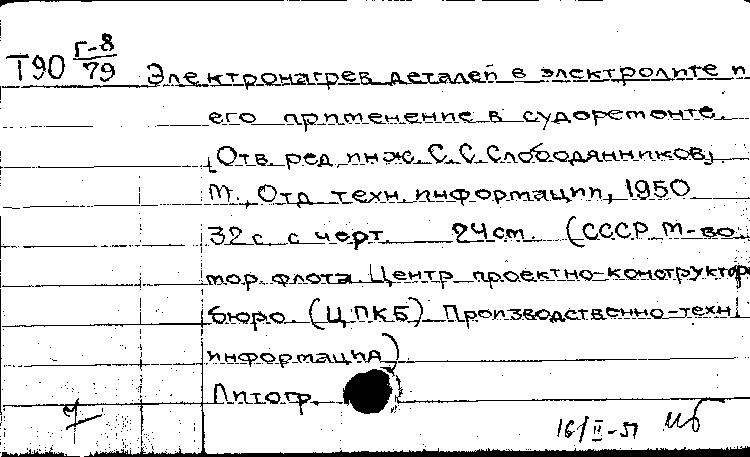 Т90 Г-8/79 Электронагрев деталей в электролите и
его применение в судоремонте.
[Отв. ред. инж. С. С. Слободянников]
М., Отд. техн. информации, 1950
32 с. с черт. 24 см. (СССР М-во.
мор. флота. Центр. проектно-конструктор.
бюро. (ЦПКБ). Производственно-техн.
информация)
Литогр.
16/II-51